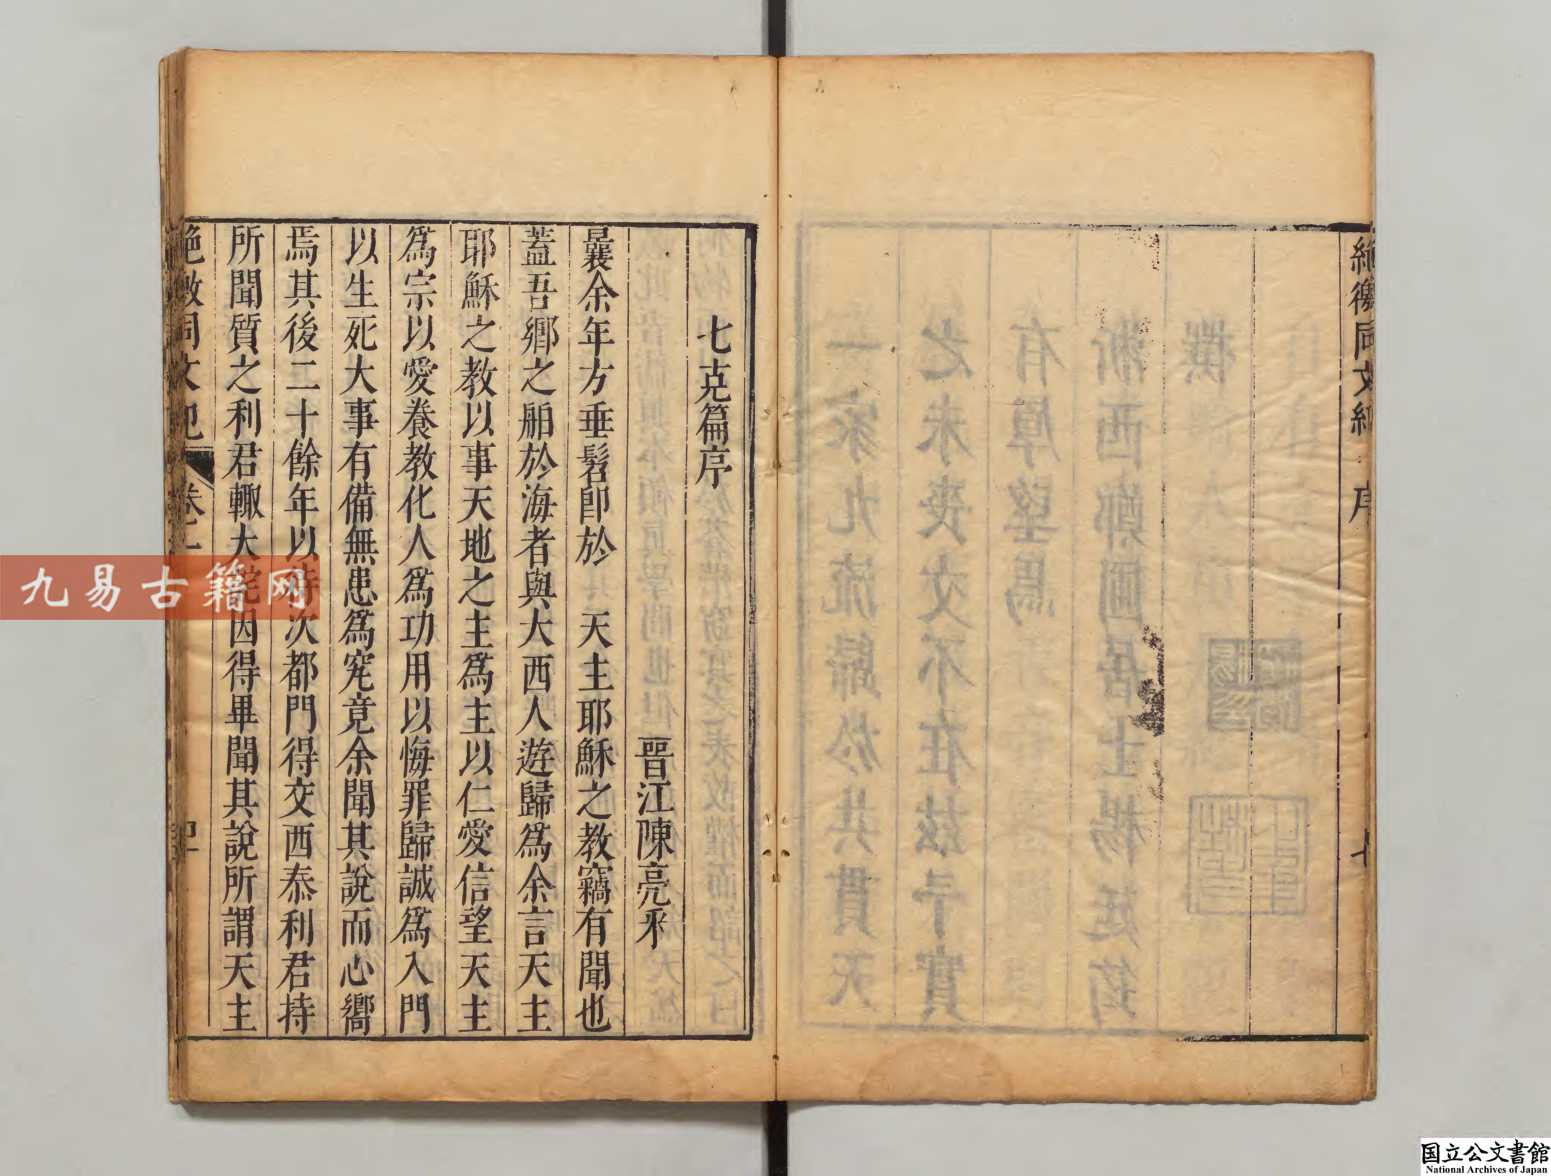 絶徼同文紀 序 七
七克篇序
晋江陳亮采
曩余年方垂髫卽於 天主耶穌之教竊有聞也
蓋吾鄉之舶於海者與大西人遊歸爲余言天主
耶穌之教以事天地之主爲主以仁愛信望天主
爲宗以愛養教化人爲功用以悔罪歸誠爲入門
以生死大事有備無患爲究竟余聞其說而心嚮
焉其後二十餘年以待次都門得交西泰利君持
所聞質之利君輙大詫因得畢聞其說所謂天主
絶徼同文紀 卷一
九易古籍网
国立公文書館
National Archives of Japan